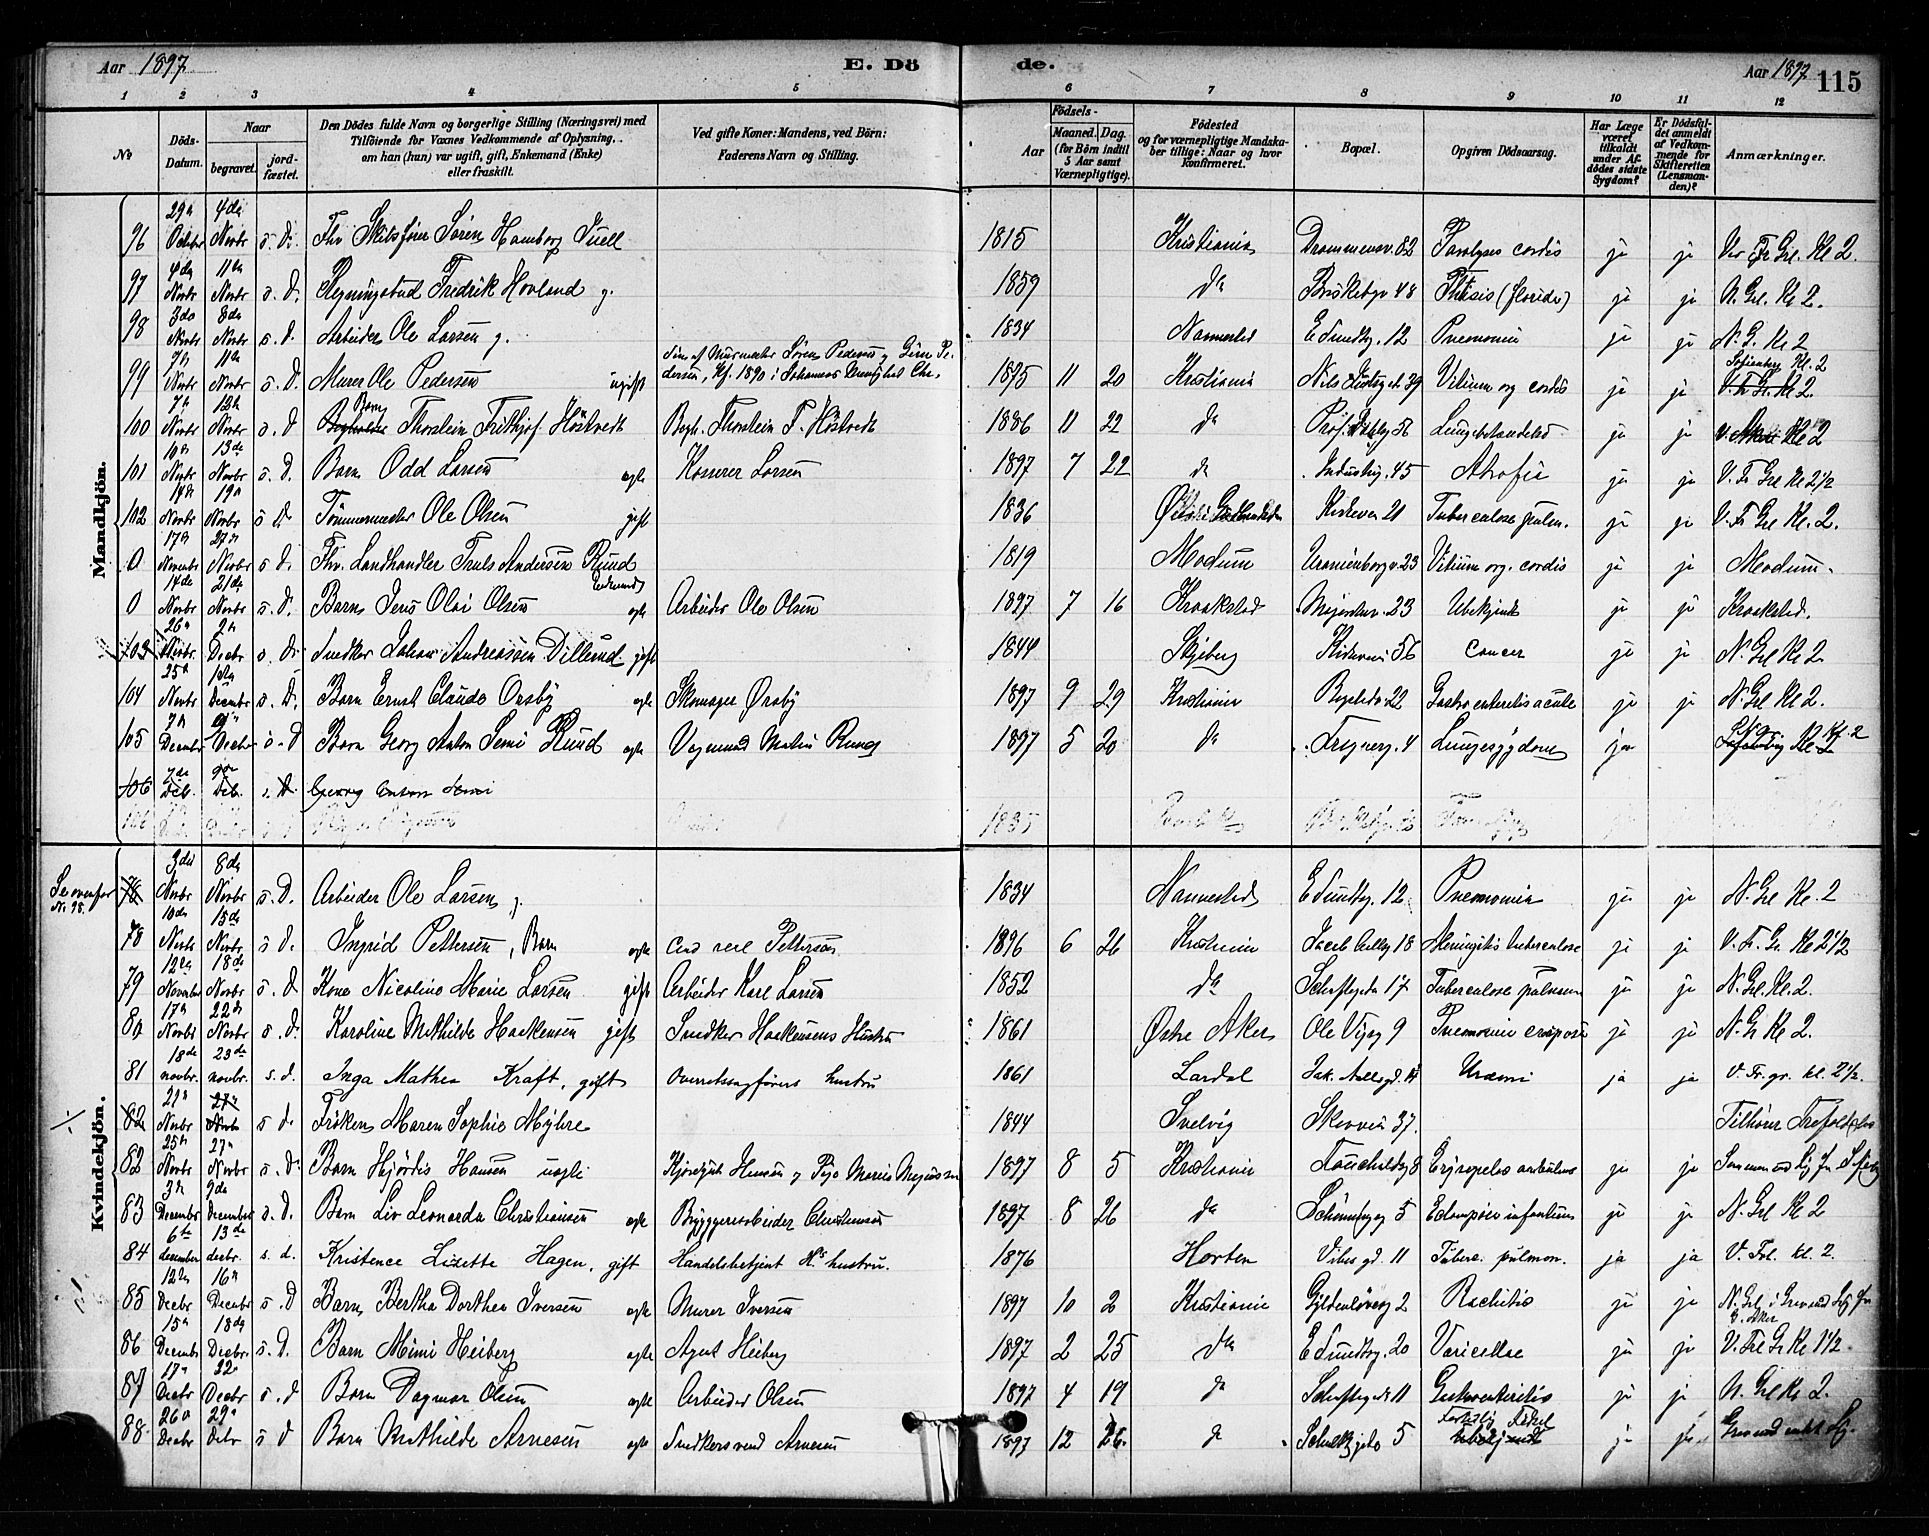 Aar 1897 E. Dö de. Aar 1897 115
1 2 3 4 5 6 7 8 9 10 11 12
No Döds-Datum. Naar begravet. jordfæstet. Den Dödes fulde Navn og borgerlige Stilling (Næringsvei) med Tilföiende for Voxnes Vedkommende af Oplysning, om han (hun) var ugift, gift, Enkemand (Enke) eller fraskilt. Ved gifte Koner: Mandens, ved Börn: Faderens Navn og Stilling. Födsels- Aar Maaned. Dag. (for Börn indtil 5 Aar samt Værnepligtige). Födested og for værnepligtige Mandskaber tillige: Naar og hvor konfirmeret. Bopæl. Opgiven Dödsaarsag. Har Læge været tilkaldt under Afdödes sidste Sygdom? Er Dödsfaldet anmeldt af Vedkommende for Skifteretten (Lensmanden)? Anmærkninger.
Mandkjön.
96 29de Octobr 4de Novbr s. D. Fhv Skibsförer Sören Hamborg Juell 1815 Kristiania Drammensv. 82 Paralysis cordis ja ja Vor Fr Grl. Kl 2.
97 4de Novbr 11te Novbr s. D. Fredrik Hovland g. 1859 do Briskebyv 48 Phtisis (florida) ja ja N. Grl. Kl 2.
98 3de Novbr 8de Novbr s. D. Arbeider Ole Larsen g. 1834 Nannestad E Sundtsg. 12 Pneumonia ja ja N. G. Kl 2
99 7de Novbr 11te Novbr s. D. Murer Ole Pedersen ugift Sön af Murmester Sören Pedersen g Gina Pedersen, Kf. 1890 i Johannes 1875 11 20 Kristiania 39 Vitium org cordis ja ja Sofienberg Kl. 2 V. Fr Gr. Kl 2.
100 7de Novbr 12te Novbr s. D Barn Thorstein Frithjof Höstvedt Bogh. Thorstein F. Höstvedt 1886 11 22 do Prof. Dahlsg 56 Lungebetændelse ja ja Kl 2
101 10de Novbr 13de Novbr s. D. Barn Odd Larsen egte Larsen 1897 7 22 do Industrig. 45 Atrofia ja ja V. Fr Grl Kl 2 1/2
102 14de Novbr 19de Novbr s D. Tömmermester Ole Olsen gift 1836 Kirkeven 21 Tuberculose pulm. ja ja V. Fr Grl Kl. 2.
0 17de Novembr 27de Novbr s D. Fhv. Landhandler Truls Andersen Ruud 1819 Modum Uranienborgv. 23 Vitium org. cordis ja ja Modum.
0 14de Novbr 21de Novbr s. D. Barn Jens Olai Edmund Olsen egte Arbeider Ole Olsen 1897 7 16 Kraakstad Majorstuv. 23 Ubekjendt ja ja Kraakstad.
103 26de Novbr. 2de Decbr s. D. Snedker Johan Andreassen Dillerud gift 1844 Skjeberg Kirkeveien 56 Cancer ja ja N. Grl Kl 2
104 25de Novbr 1ste Decembr s. D. Barn Ernst Claudo Orsby egte Skomager Örsby 1897 9 29 Kristiania 22 Gastro enteritis acuta ja ja N. Grl Kl 2.
105 7de Decembr 9de Decbr s. D Barn Georg Anton Semi Ruud egte Vognmand Martin Ruud 1897 5 20 do Frognerg. 4 Lungesygdom ja Kl. 2
106 7de Deb. 9de Deb. s. D. Georg Anton Semi
106 1835
Kvindekjön.
Se ovenfor Nr. 98. 78 3die Novbr 8de Novbr s. D. Arbeider Ole Larsen g. 1834 Nannestad E Sundtsg. 12 Pneumonia ja ja N. Grl Kl. 2
78 10de Novbr 15de Novbr s D. Ingrid Pettersen, Barn egte Cand real Petterson 1896 6 26 Kristiania Jacob Aallsg 18 Meningitis tuberculose ja ja V. Fr. Gr. Kl 2 1/2
79 12te November 18de Novbr s. D Kone Nicoline Marie Larsen gift Arbeider Karl Larsen 1852 do Schultzgade 17 Tuberculose pulmon ja ja N. Grl. Kl. 2.
80 17de Novbr 22de Novbr s. D. Karoline Mathilde Haakensen gift Snedker Haakensens Hustru 1861 Östre Aker Ole Vigsg 9 Pneumonia crouposa ja ja N. Gr Kl 2.
81 18de novbr. 23de novbr. s. d. Inga Mathea Kraft, gift Overretssagförers hustru 1861 Lardal Jak. Aallsgd. 14 Uræmi ja ja V. Fr. gr. kl. 2 1/2.
82 21de Novbr 27de Novbr s d. Fröken Maren Sophie Myhre 1844 Svelvig Skovvei 37. Tilhörer
82 25de Novbr 27de Novbr s. D. Barn Hjördis Hansen uegte Hansen g Marie 1897 8 5 Kristiania 8 Erysipelas ja ja
83 3de December 9de December s. D. Barn Liv Leonarda Christiansen egte Bryggeriarbeider Christiansen 1897 8 26 do Schönningsg 5 Eclampsia infantum ja ja N. Grl Kl 2
84 6te december 13de decbr. s. d. Kristence Lisette Hagen, gift Handelsbetjent H's hustru. 1876 Horten Vibes gd. 11 Tuberc. pulmon. ja ja V. Frl. kl. 2.
85 12te Decbr 16de Decembr s. D Barn Bertha Dorthea Iversen egte Murer Iversen 1897 10 2 Kristiania Gyldenlövesg 2 Rachitis ja ja N. Grl. i
86 15de Decembr 18de Decbr s. D. Barn Mimi Heiberg egte Agent Heiberg 1897 2 25 do E Sundtsg. 20 Varicellae ja ja V. Fr Gr Kl 1 1/2.
87 17de Decbr 22de Decbr s. d Barn Dagmar Olsen egte Arbeider Olsen 1897 4 19 do Schultzgade 11 Gastroenteritis ja ja N. Grl Kl 2.
88 26de Decbr 29de Debr s D Barn Mathilde Arnesen egte Snedkersvend Arnesen 1897 12 26. do Schultzgade 5 ja ja